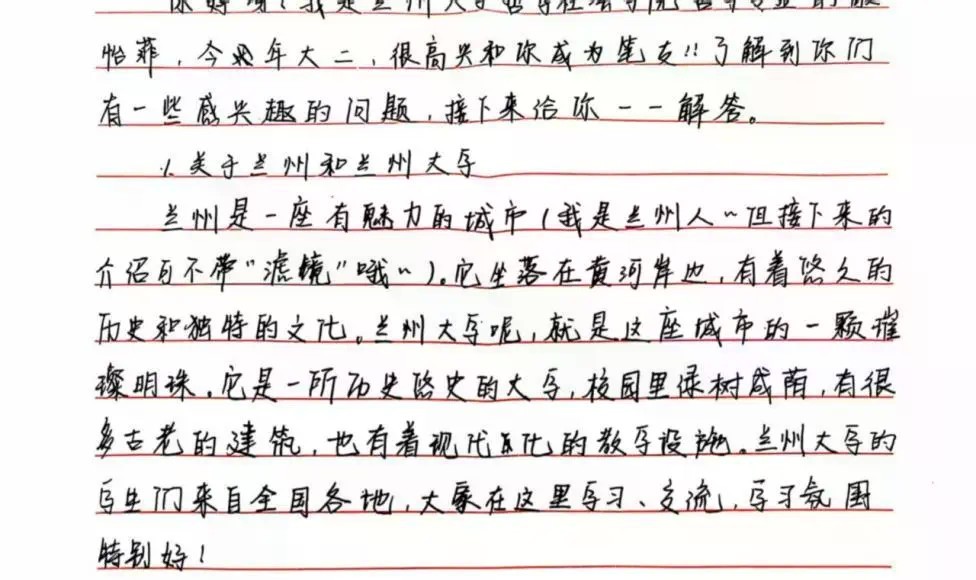 你好呀！我是兰州大学哲学社会学院哲学专业的
怡菲，今年大二，很高兴和你成为笔友!!了解到你们
有一些感兴趣的问题，接下来给你一一解答。
1.关于兰州和兰州大学
兰州是一座有魅力的城市（我是兰州人~但接下来的
介绍可不带“滤镜”哦~）。它坐落在黄河岸边，有着悠久的
历史和独特的文化。兰州大学呢，就是这座城市的一颗璀
璨明珠。它是一所历史悠史的大学，校园里绿树成荫，有很
多古老的建筑，也有着现代化的教学设施。兰州大学的
学生们来自全国各地，大家在这里学习、交流，学习氛围
特别好！